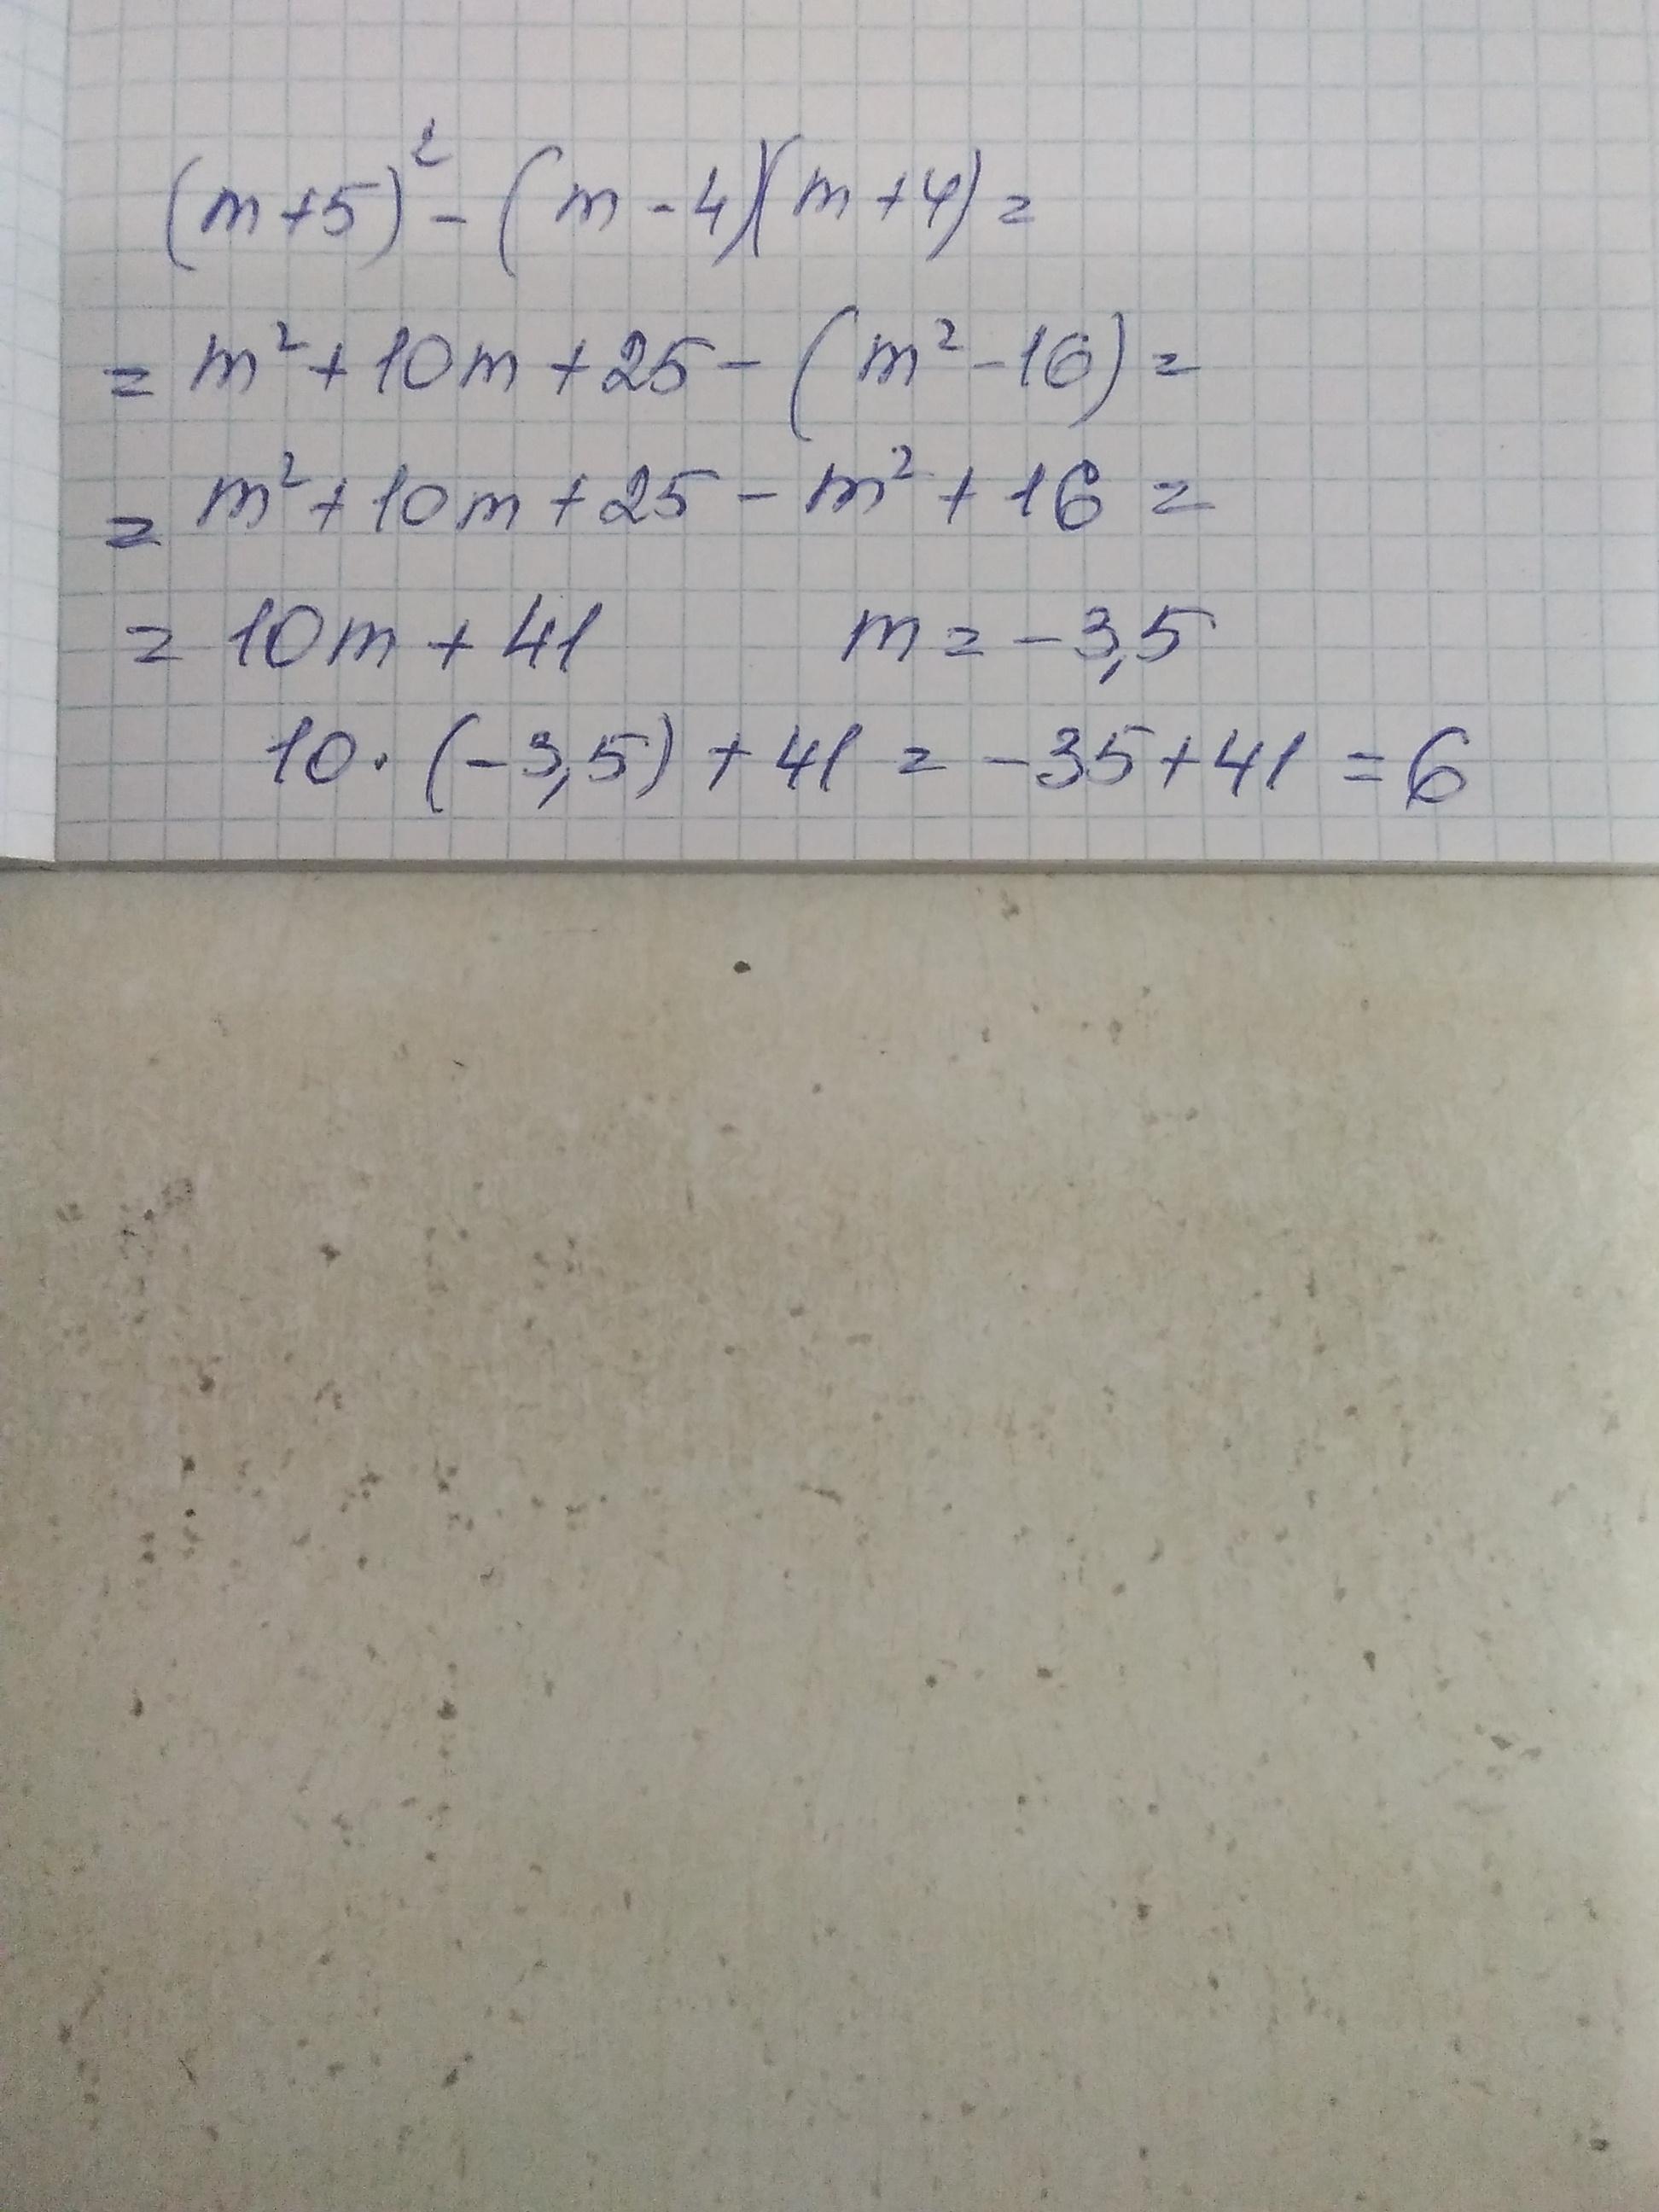 (m+5)² - (m-4)(m+4) =
= m² + 10m + 25 - (m² - 16) =
= m² + 10m + 25 - m² + 16 =
= 10m + 41 m = -3,5
10 · (-3,5) + 41 = -35 + 41 = 6